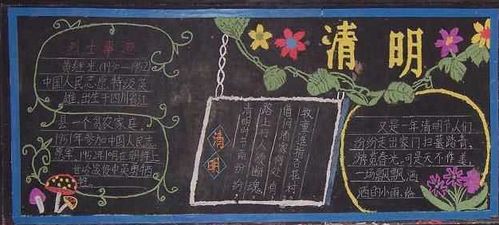 清明
烈士事迹
黄继光(1930-1952)
中国人民志愿特级英
雄,出生于四川省江
县一个贫农家庭,
1951年参加中国人民志
清明
清明时节雨纷纷
路上行人欲断魂
借问酒家何处有
牧童遥指杏花村
又是一年清明节人们
纷纷走出家门扫墓踏青,
春光,可是天不作美,
一场飘飘洒
洒的小雨,给